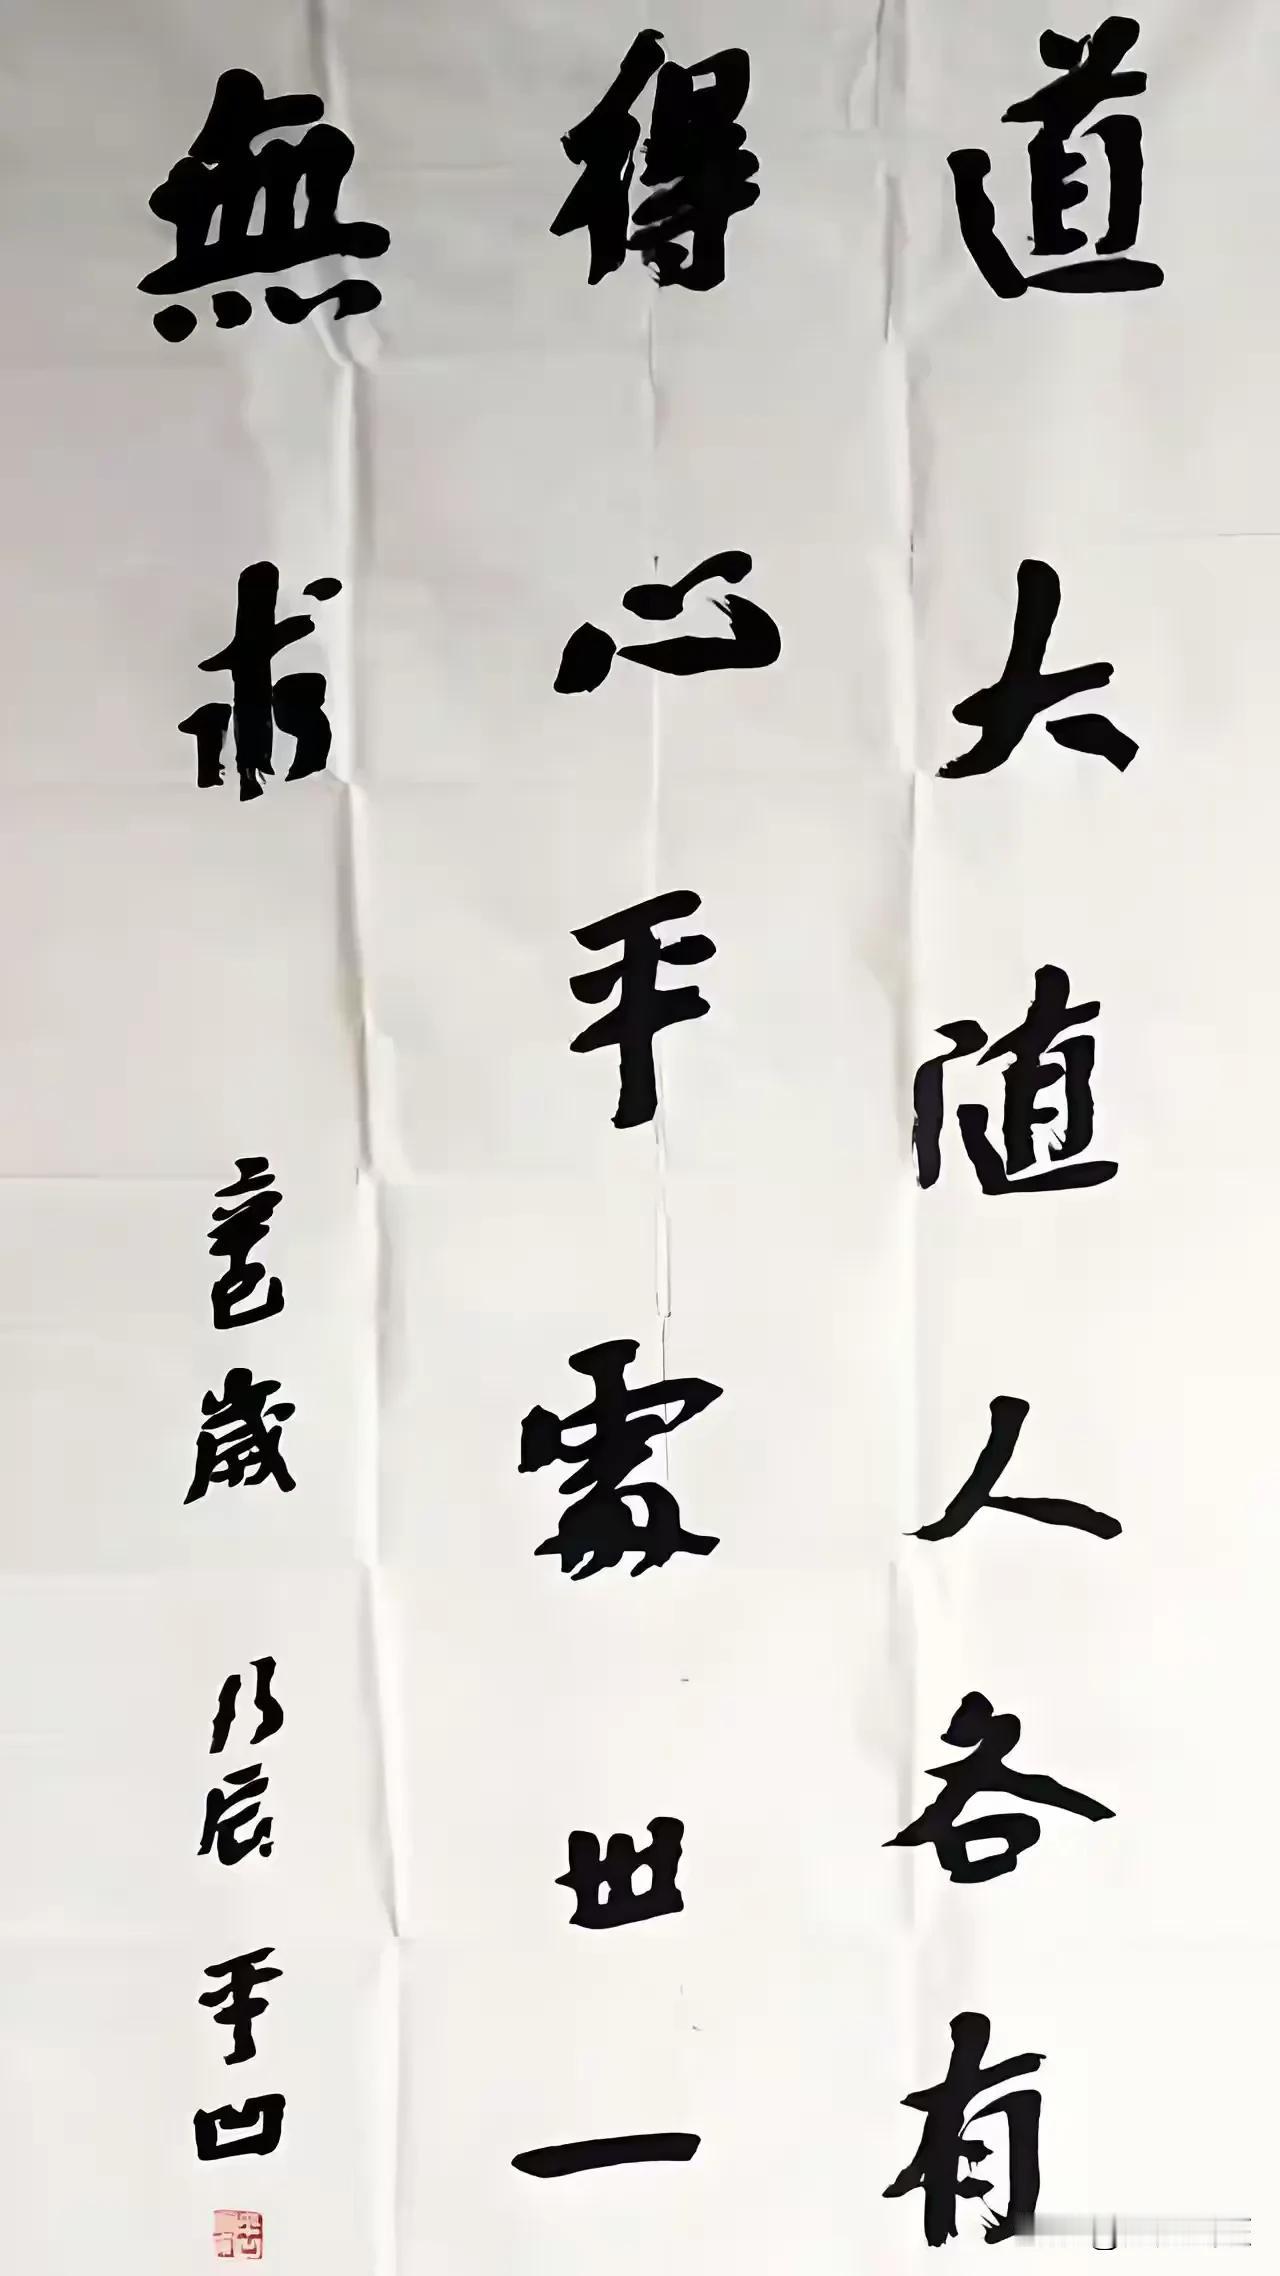 道大随人各有
得心平處世一
無求
歲
乃辰
平凹